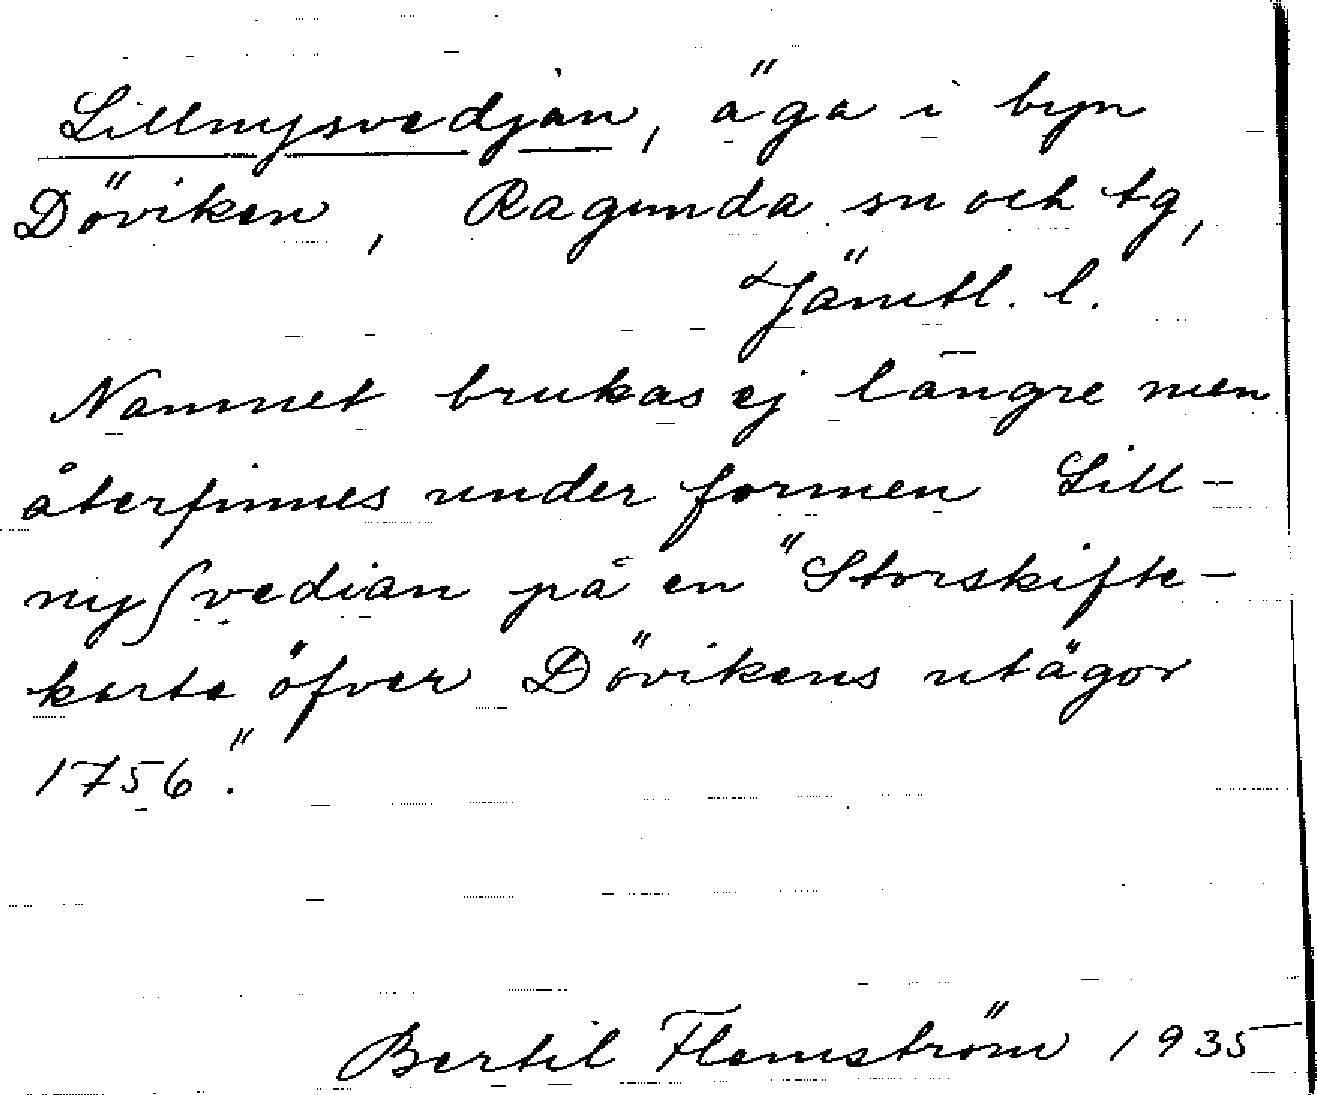 Lillnysvedjan, äga i byn
Döviken, Ragunda sn och tg,
Jämtl. l.
Namnet brukas ej längre men
återfinnes under formen Lill-
nyſvedian på en "Storskifte-
karta öfver Dövikens utägor
1756."
Bertil Flemström 1935